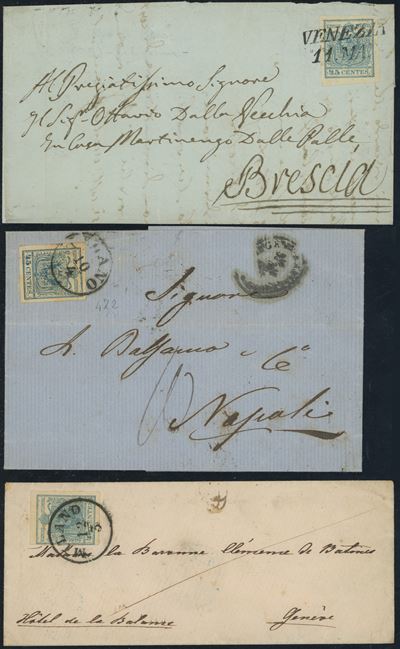 VENEZIA
11. MA
45 CENTES
Al Pregiatissimo Signore
Il Sigr Ottavio Dalla Vecchia
In Casa Martinengo Dalle Palle,
Brescia
MILANO
45 CENTES
472
Signori
Balsamo e Ca
Napoli
MILANO
Madame la Baronne Clémence de
Hôtel de la Balance
Genève